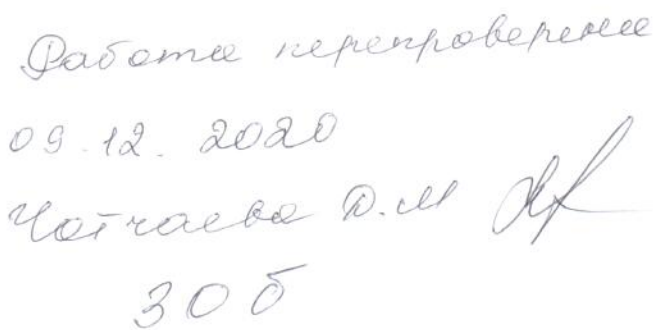 Работа перепроверена
09.12.2020
Чотчаева Д.М
30 б